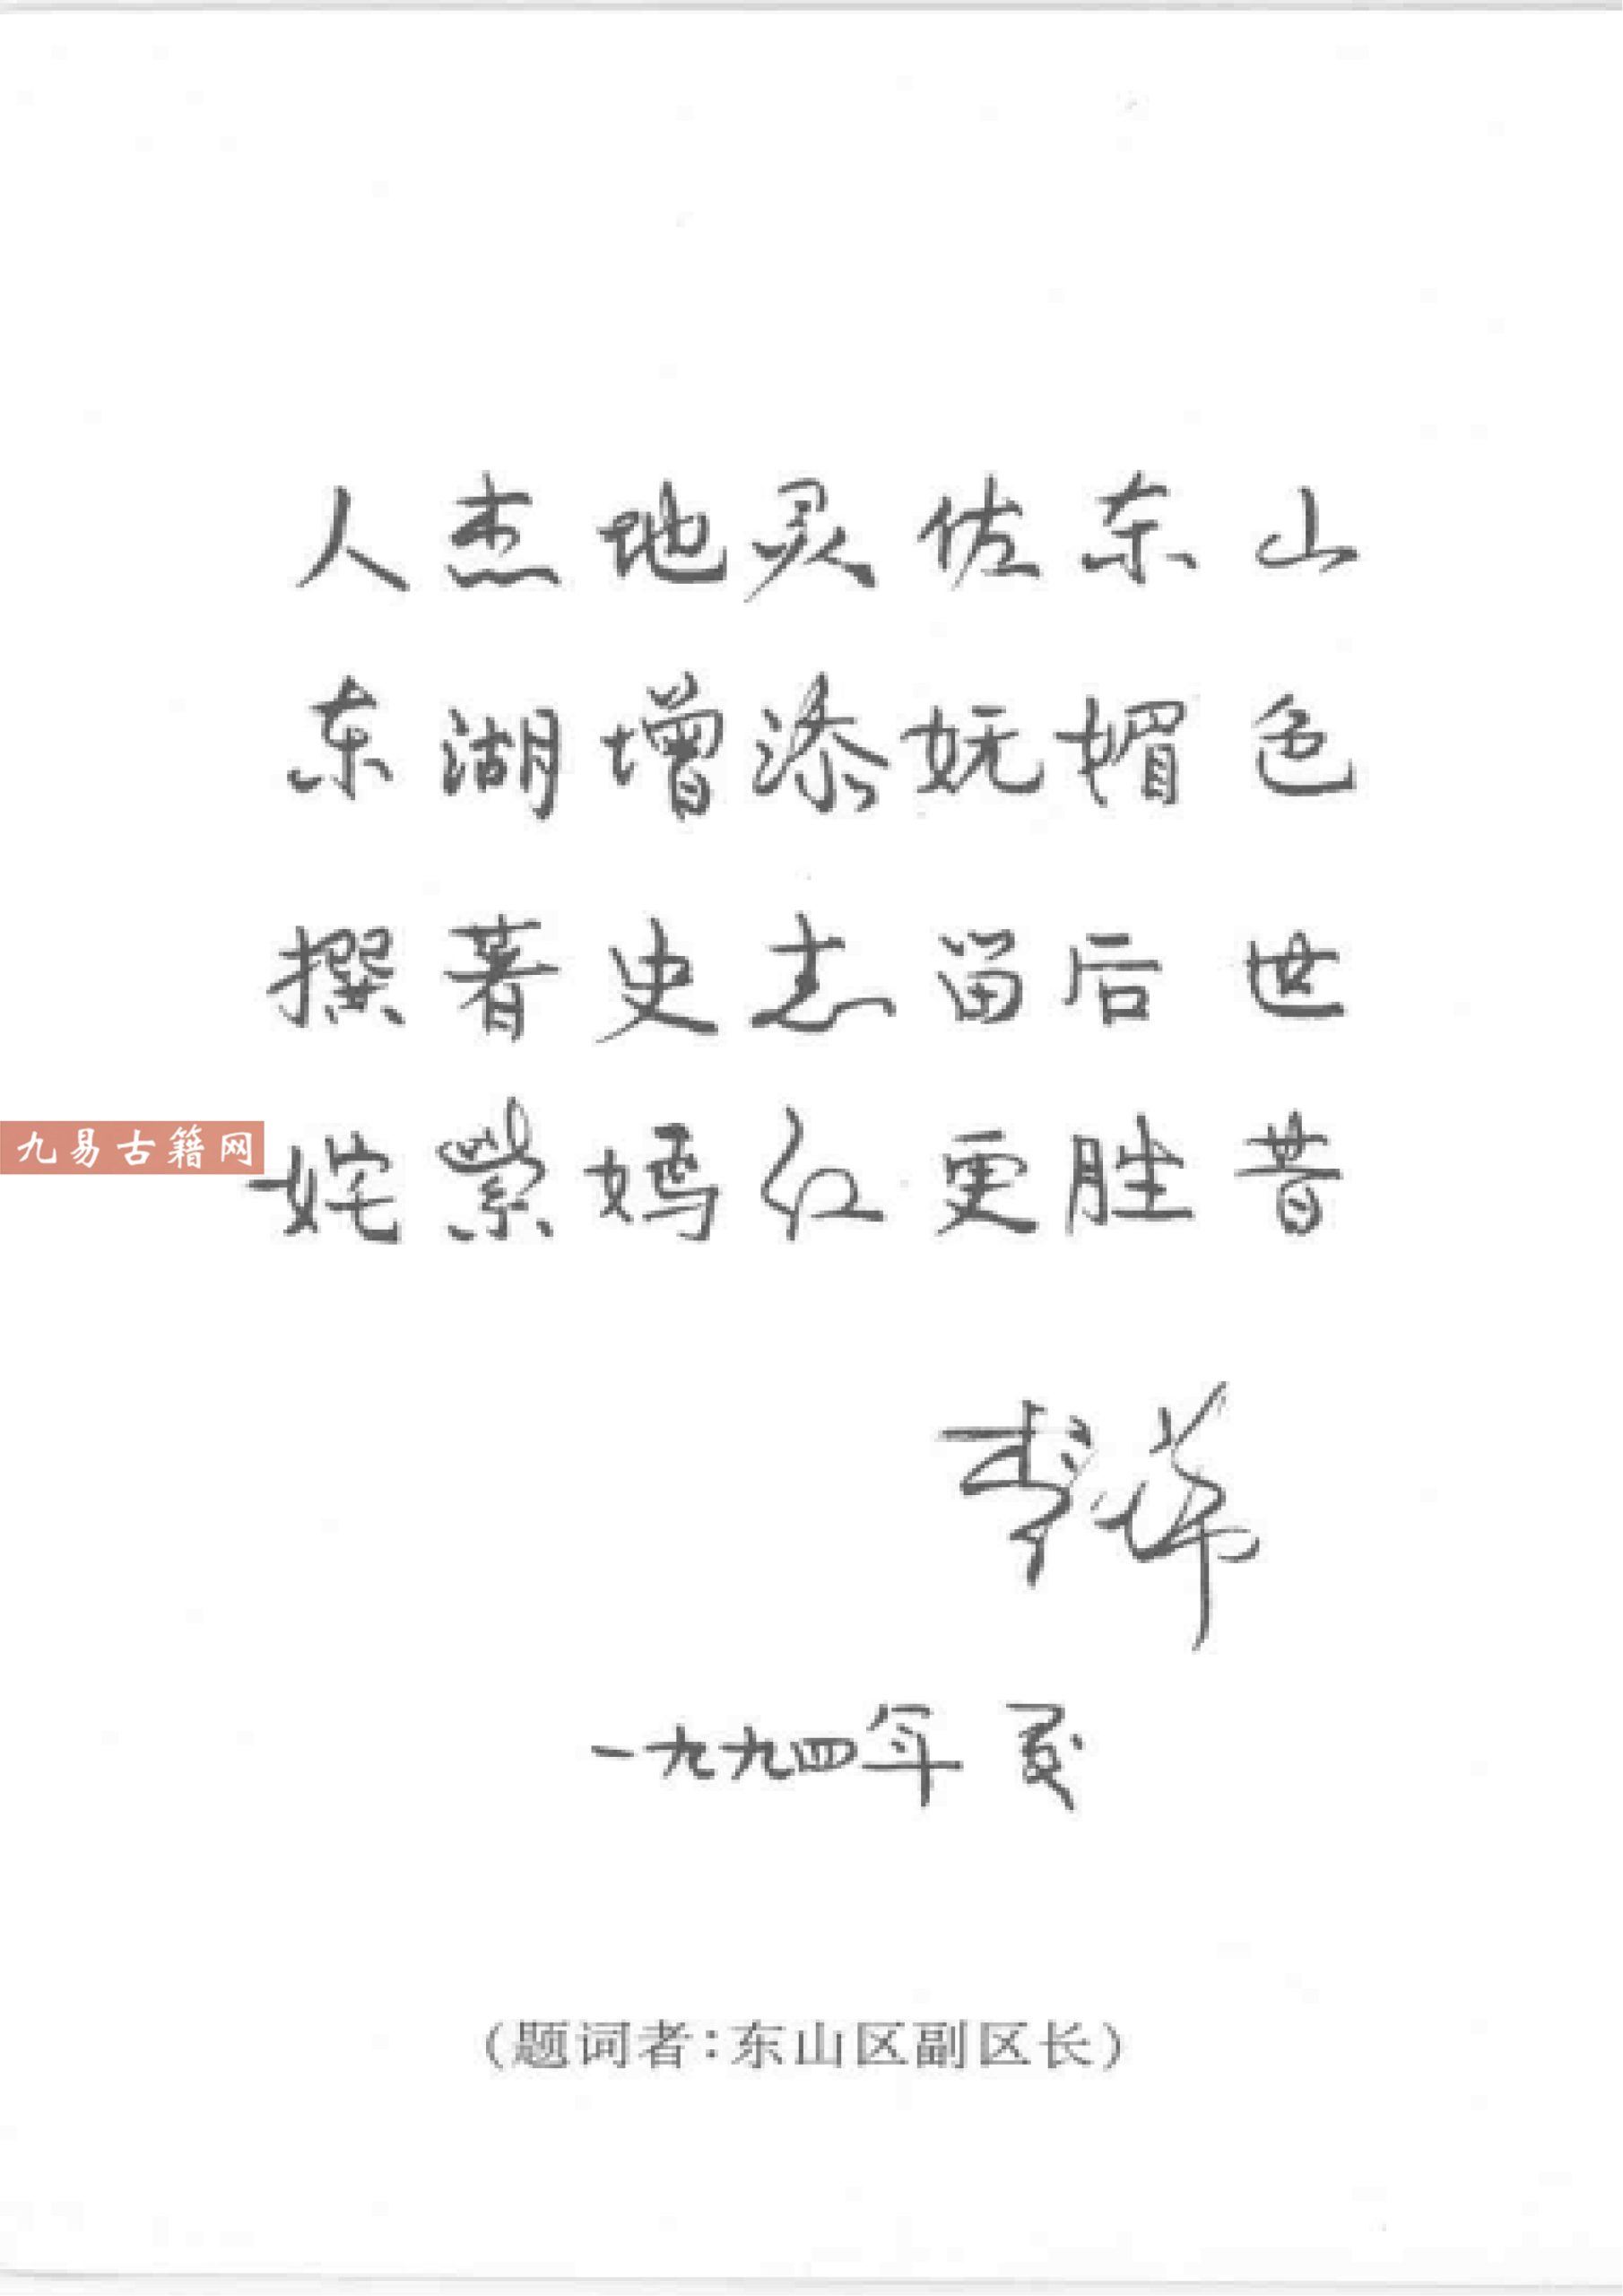 人杰地灵佐东山
东湖增添妩媚色
撰著史志留后世
九易古籍网
姹紫嫣红更胜昔
李
一九九四年夏
(题词者:东山区副区长)